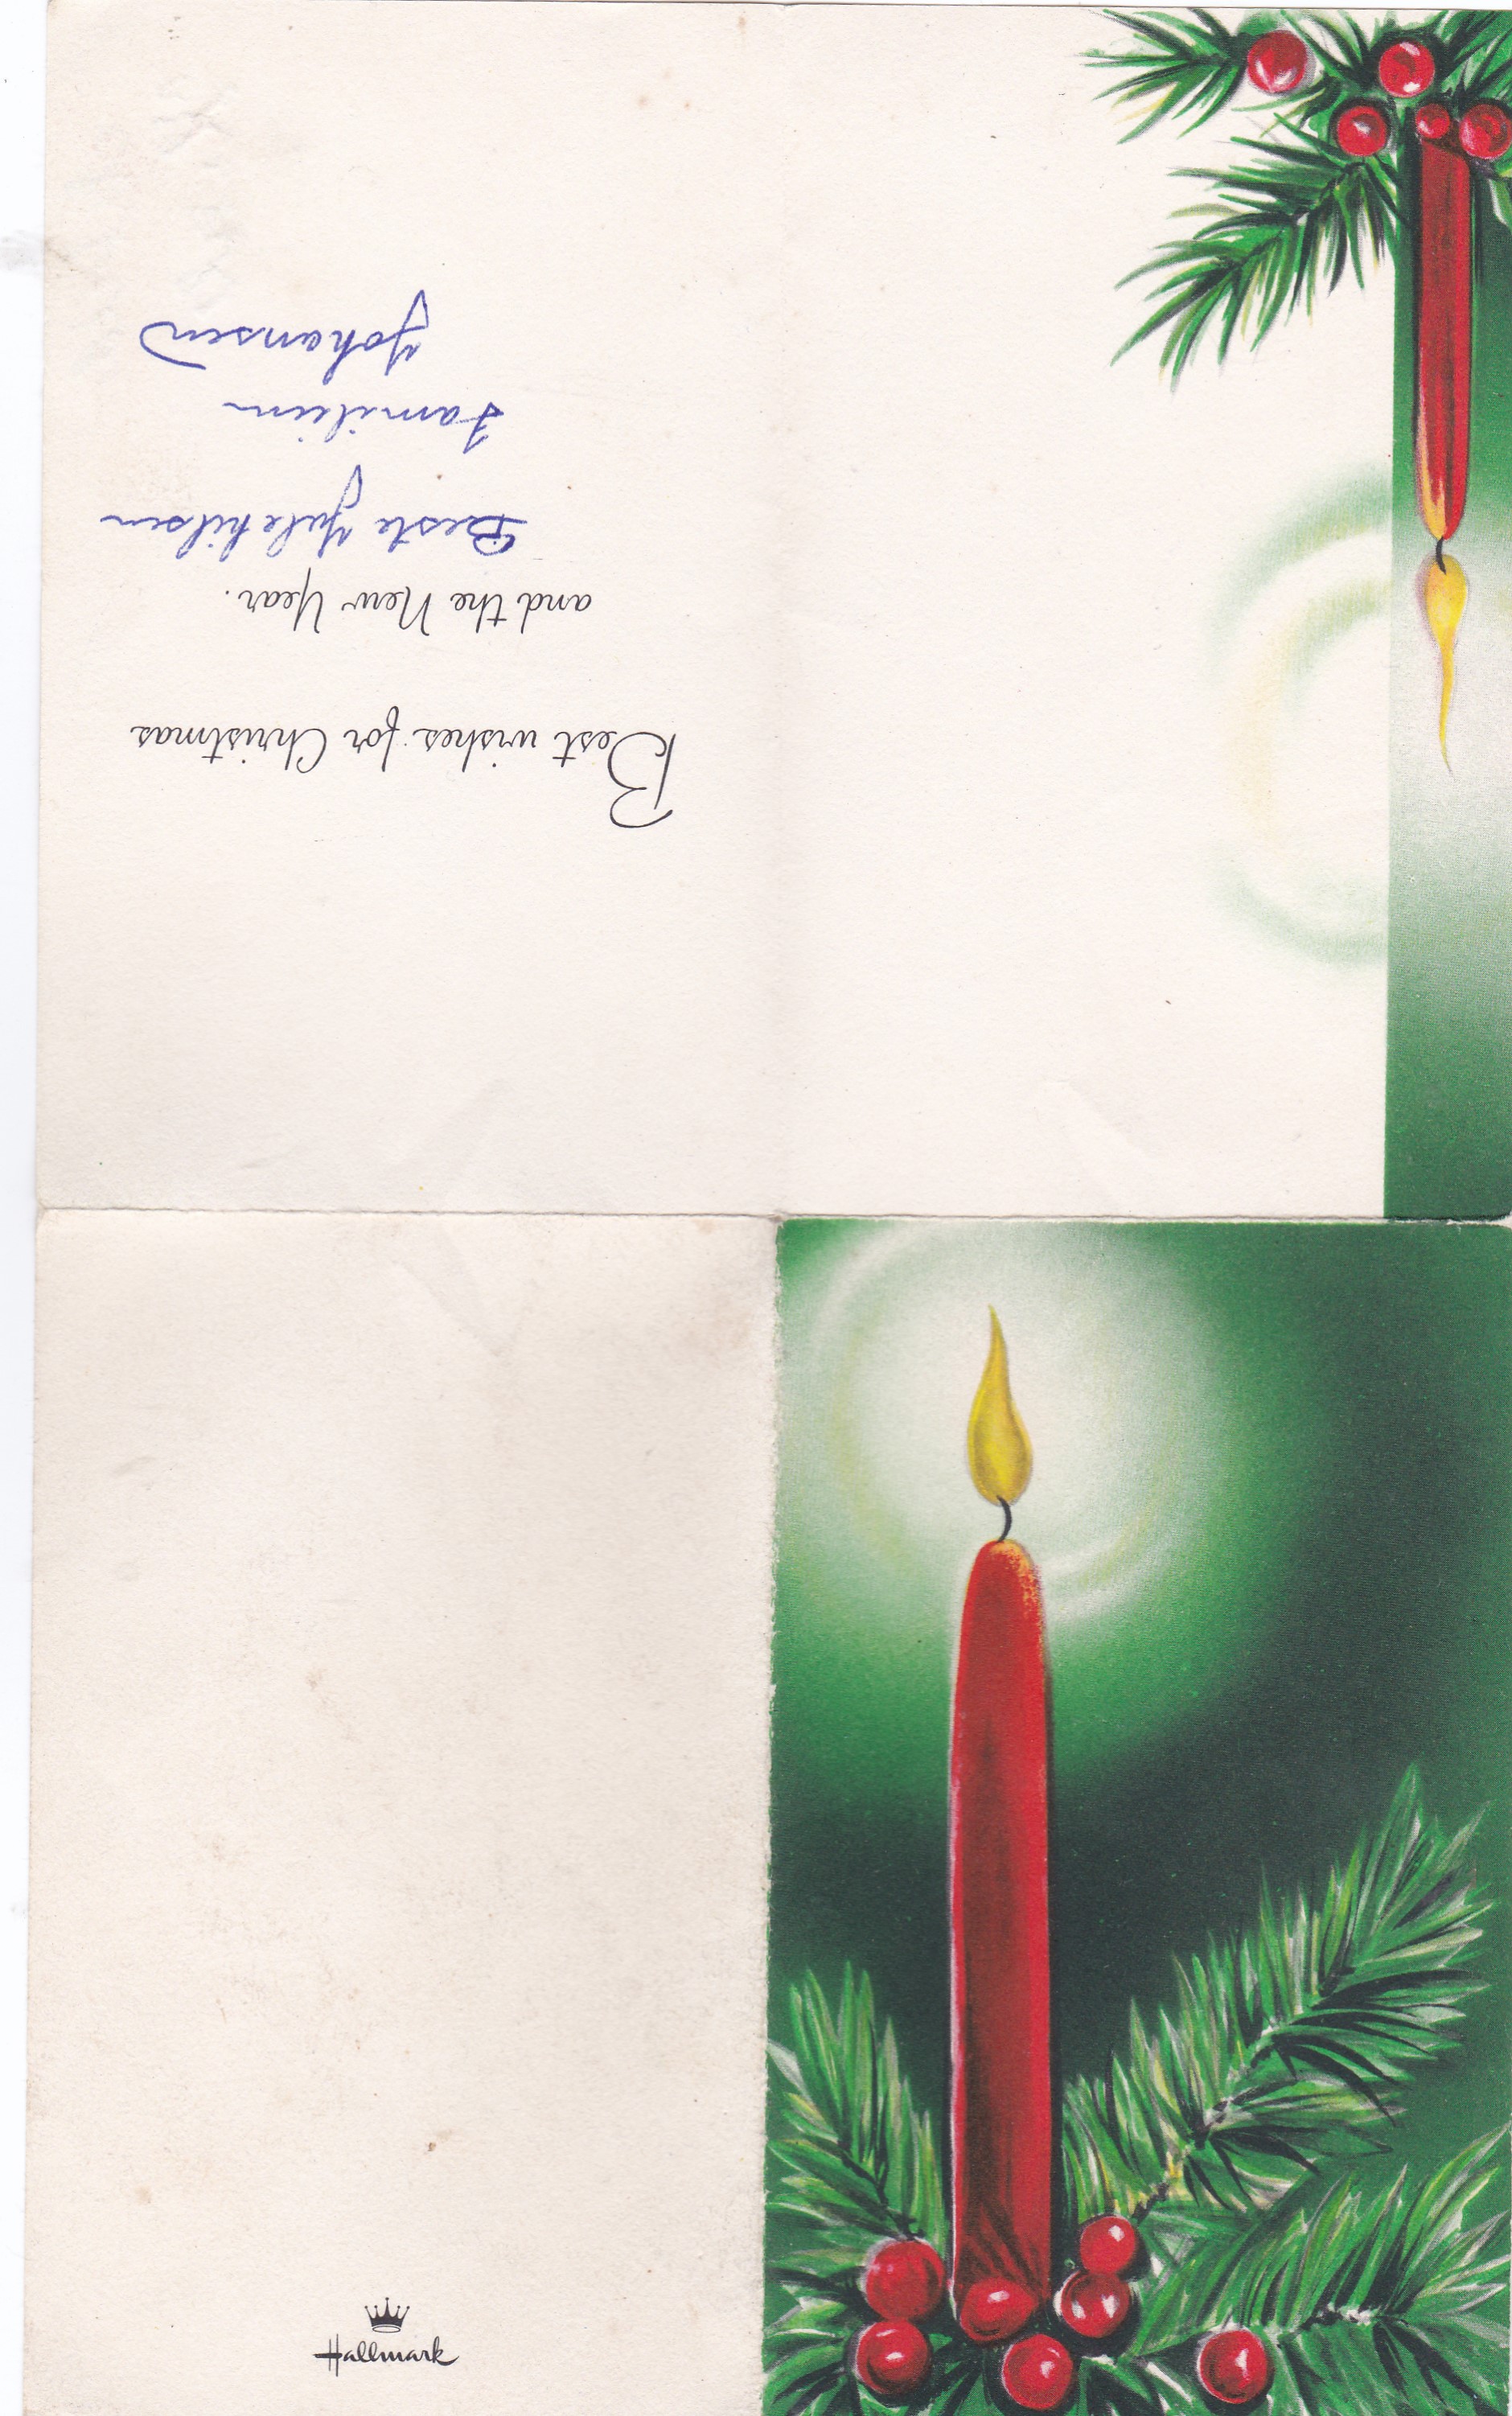 Best wishes for Christmas
and the New Year.
Beste Julehilsen
Familien
Johansen
Hallmark